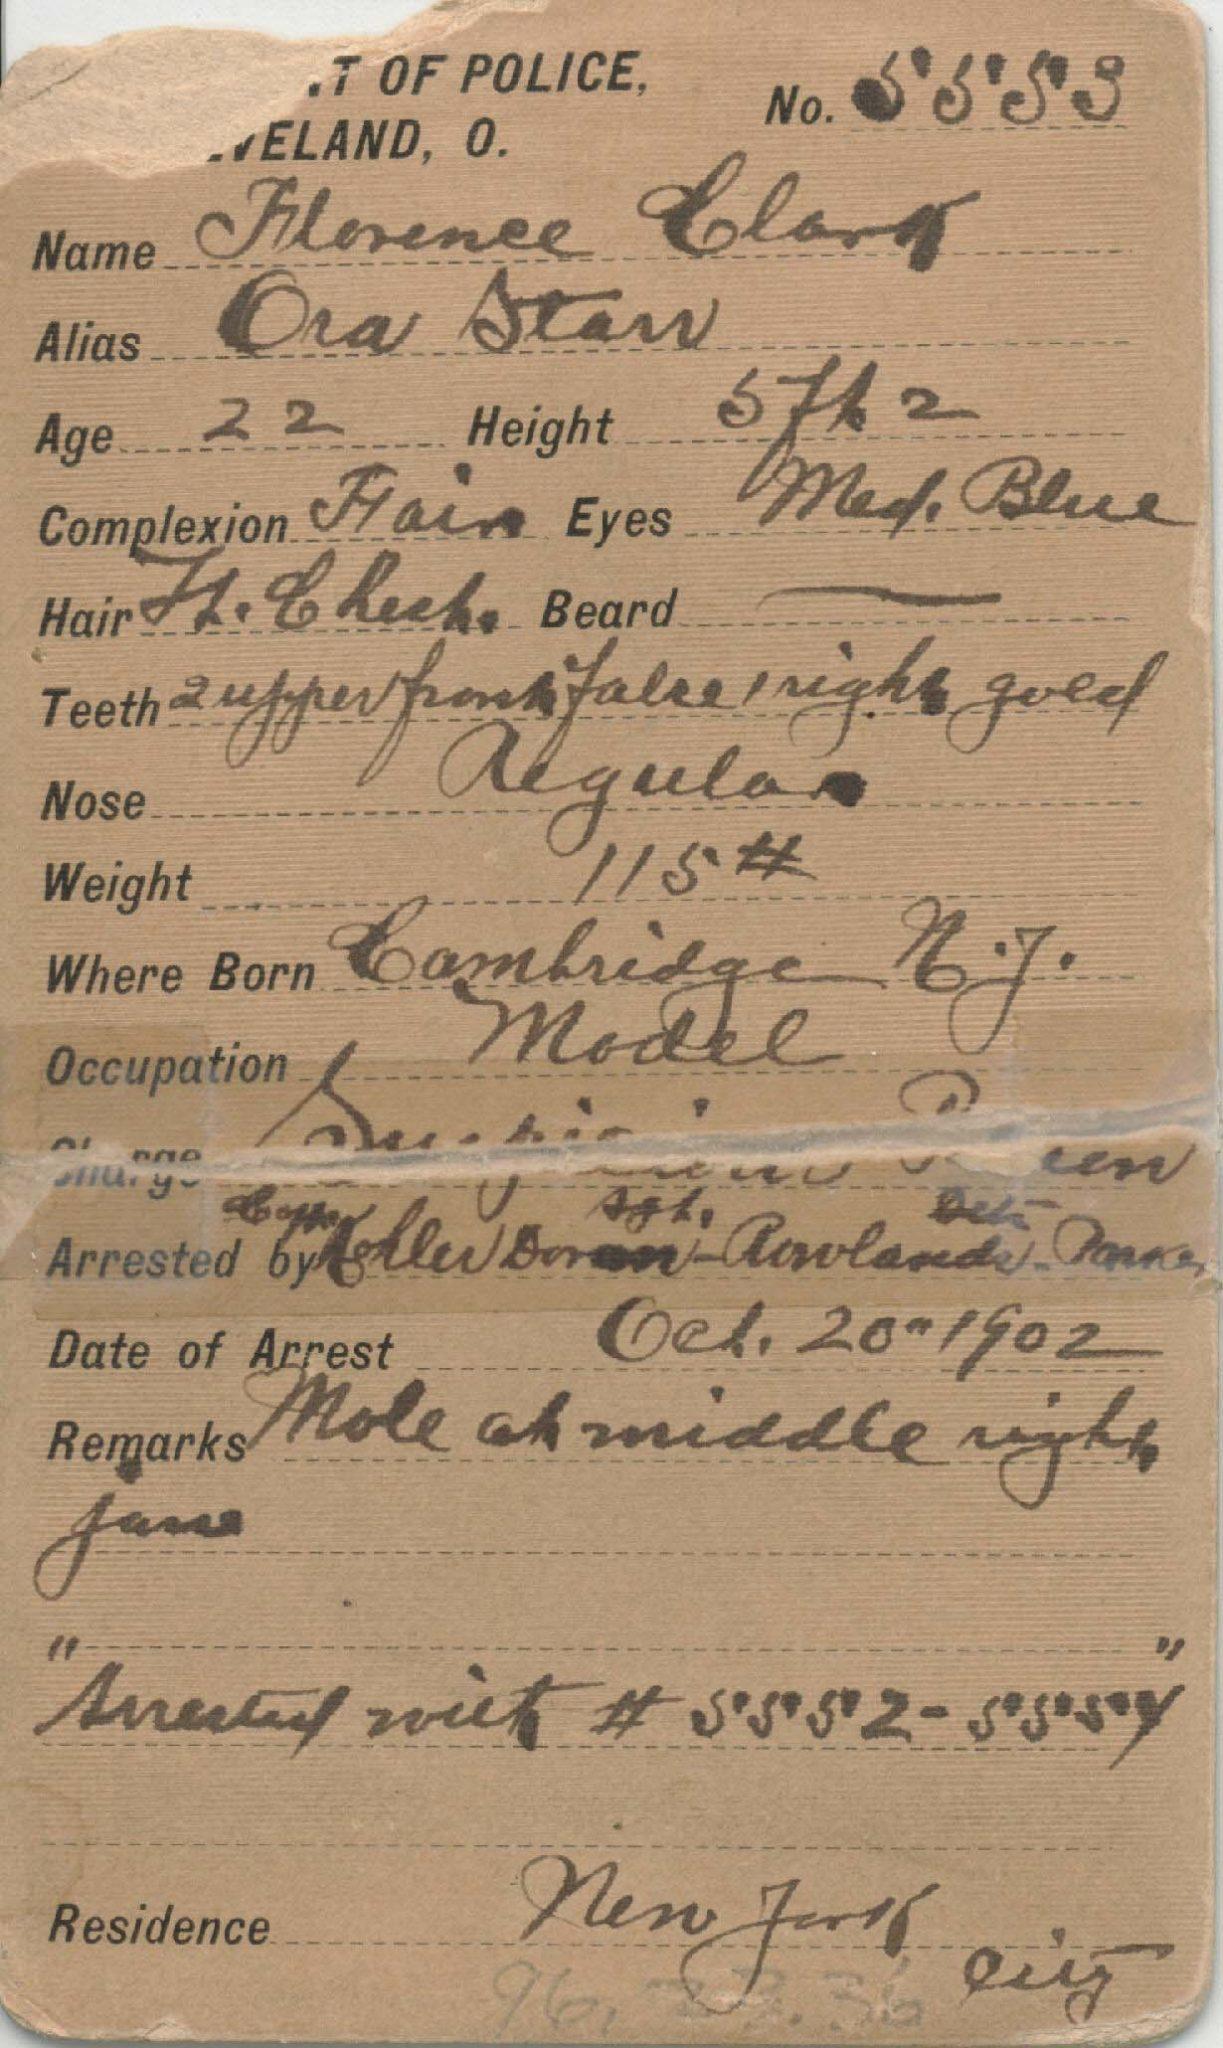 T OF POLICE,
No. 5553
VELAND, O.
Name Florence Clark
Alias Ora Starr
Age 22 Height 5 ft 2
Complexion Fair Eyes Med. Blue
Hair Lt. Chest. Beard —
Teeth 2 upper front false 1 right gold
Nose Regular
Weight 115 #
Where Born Cambridge N.J.
Occupation Model
Charge Suspicious Person
Capt. Sgt. Dets
Arrested by Doran - Rowlands - Parker
Date of Arrest Oct. 20" 1902
Remarks Mole at middle right
jaw
" "
Arrested with # 5552 - 5554
Residence New York
City